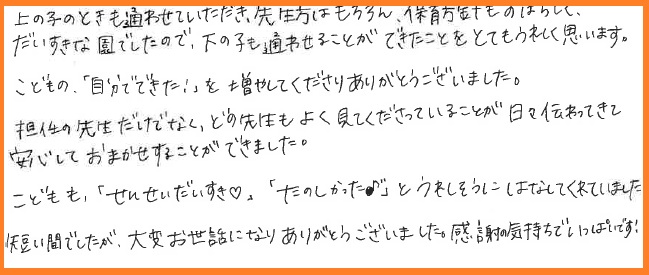 上の子のときも通わせていただき、先生方はもちろん、保育方針ものばらしく、
だいすきな園でしたので、下の子も通わせることができたことをとてもうれしく思います。
こどもの、「自分でできた!」を増やしてくださりありがとうございました。
担任の先生だけでなく、どの先生もよく見てくださっていることが日々伝わってきて
安心しておまかせすることができました。
こどもも、「せんせいだいすき♡」、「たのしかった♪」とうれしそうにはなしてくれていました
短い間でしたが、大変お世話になりありがとうございました。感謝の気持ちでいっぱいです!